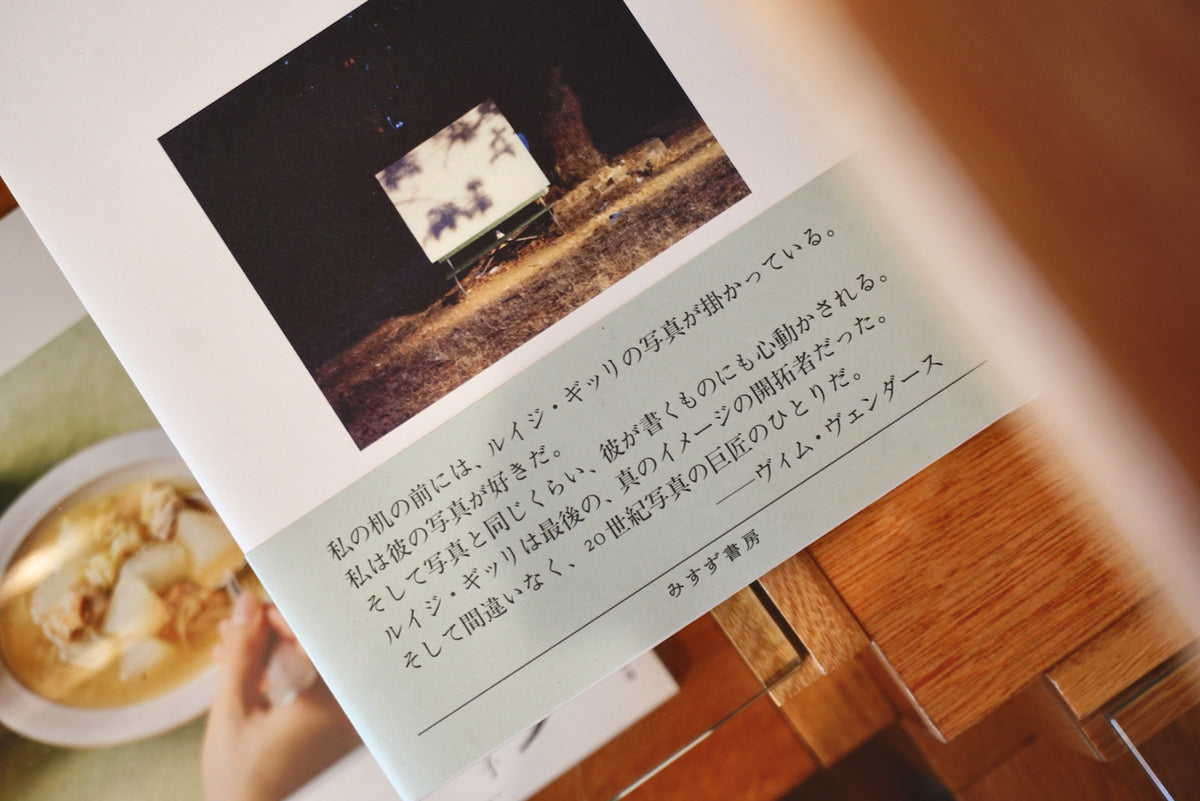 私の机の前には、ルイジ・ギッリの写真が掛かっている。
私は彼の写真が好きだ。
そして写真と同じくらい、彼が書くものにも心動かされる。
ルイジ・ギッリは最後の、真のイメージの開拓者だった。
そして間違いなく、20世紀写真の巨匠のひとりだ。
──ヴィム・ヴェンダース
みすず書房